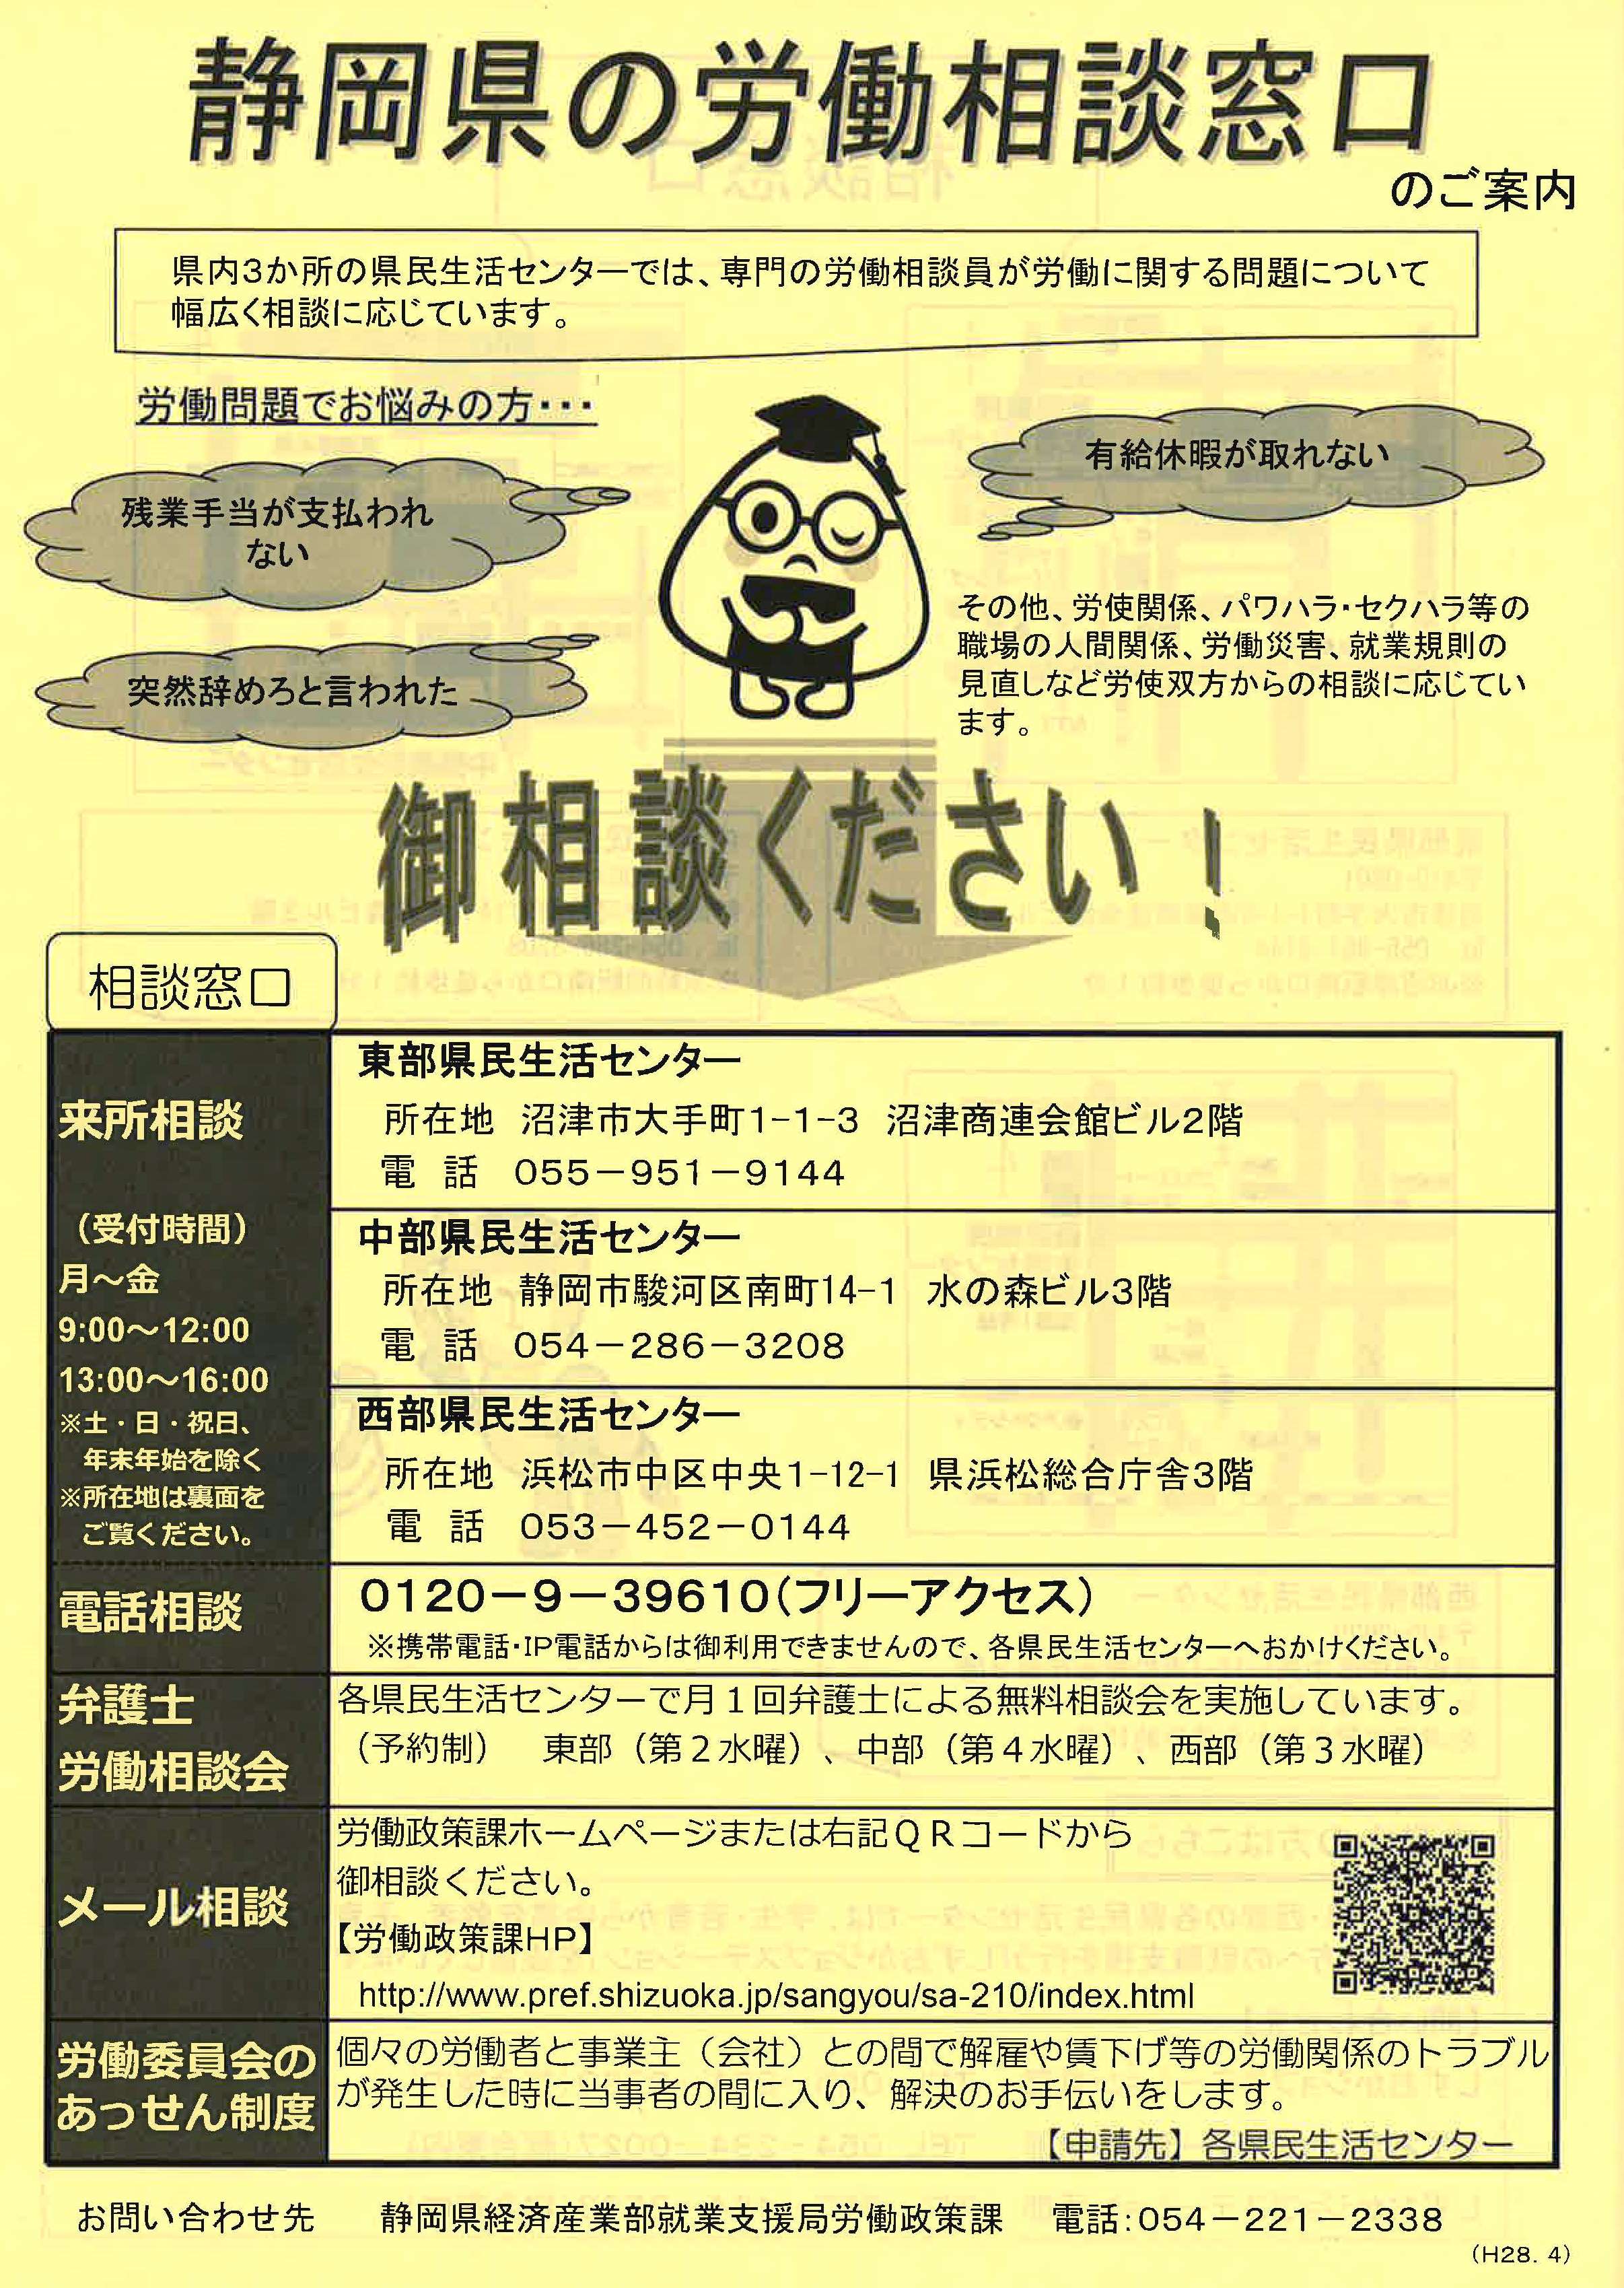 静岡県の労働相談窓口
のご案内
県内3か所の県民生活センターでは、専門の労働相談員が労働に関する問題について
幅広く相談に応じています。
労働問題でお悩みの方・・・
残業手当が支払われ
ない
有給休暇が取れない
突然辞めろと言われた
その他、労使関係、パワハラ・セクハラ等の
職場の人間関係、労働災害、就業規則の
見直しなど労使双方からの相談に応じてい
ます。
御相談ください！
相談窓口
来所相談
（受付時間）
月～金
9:00～12:00
13:00～16:00
※土・日・祝日、
年末年始を除く
※所在地は裏面を
ご覧ください。
東部県民生活センター
所在地 沼津市大手町1-1-3 沼津商連会館ビル2階
電 話 055－951－9144
中部県民生活センター
所在地 静岡市駿河区南町14-1 水の森ビル3階
電 話 054－286－3208
西部県民生活センター
所在地 浜松市中区中央1-12-1 県浜松総合庁舎3階
電 話 053－452－0144
電話相談
0120－9－39610(フリーアクセス)
※携帯電話・IP電話からは御利用できませんので、各県民生活センターへおかけください。
弁護士
労働相談会
各県民生活センターで月１回弁護士による無料相談会を実施しています。
（予約制） 東部（第２水曜）、中部（第４水曜）、西部（第３水曜）
メール相談
労働政策課ホームページまたは右記ＱＲコードから
御相談ください。
【労働政策課HP】
http://www.pref.shizuoka.jp/sangyou/sa-210/index.html
労働委員会の
あっせん制度
個々の労働者と事業主（会社）との間で解雇や賃下げ等の労働関係のトラブル
が発生した時に当事者の間に入り、解決のお手伝いをします。
【申請先】各県民生活センター
お問い合わせ先 静岡県経済産業部就業支援局労働政策課 電話：054－221－2338
（H28. 4）